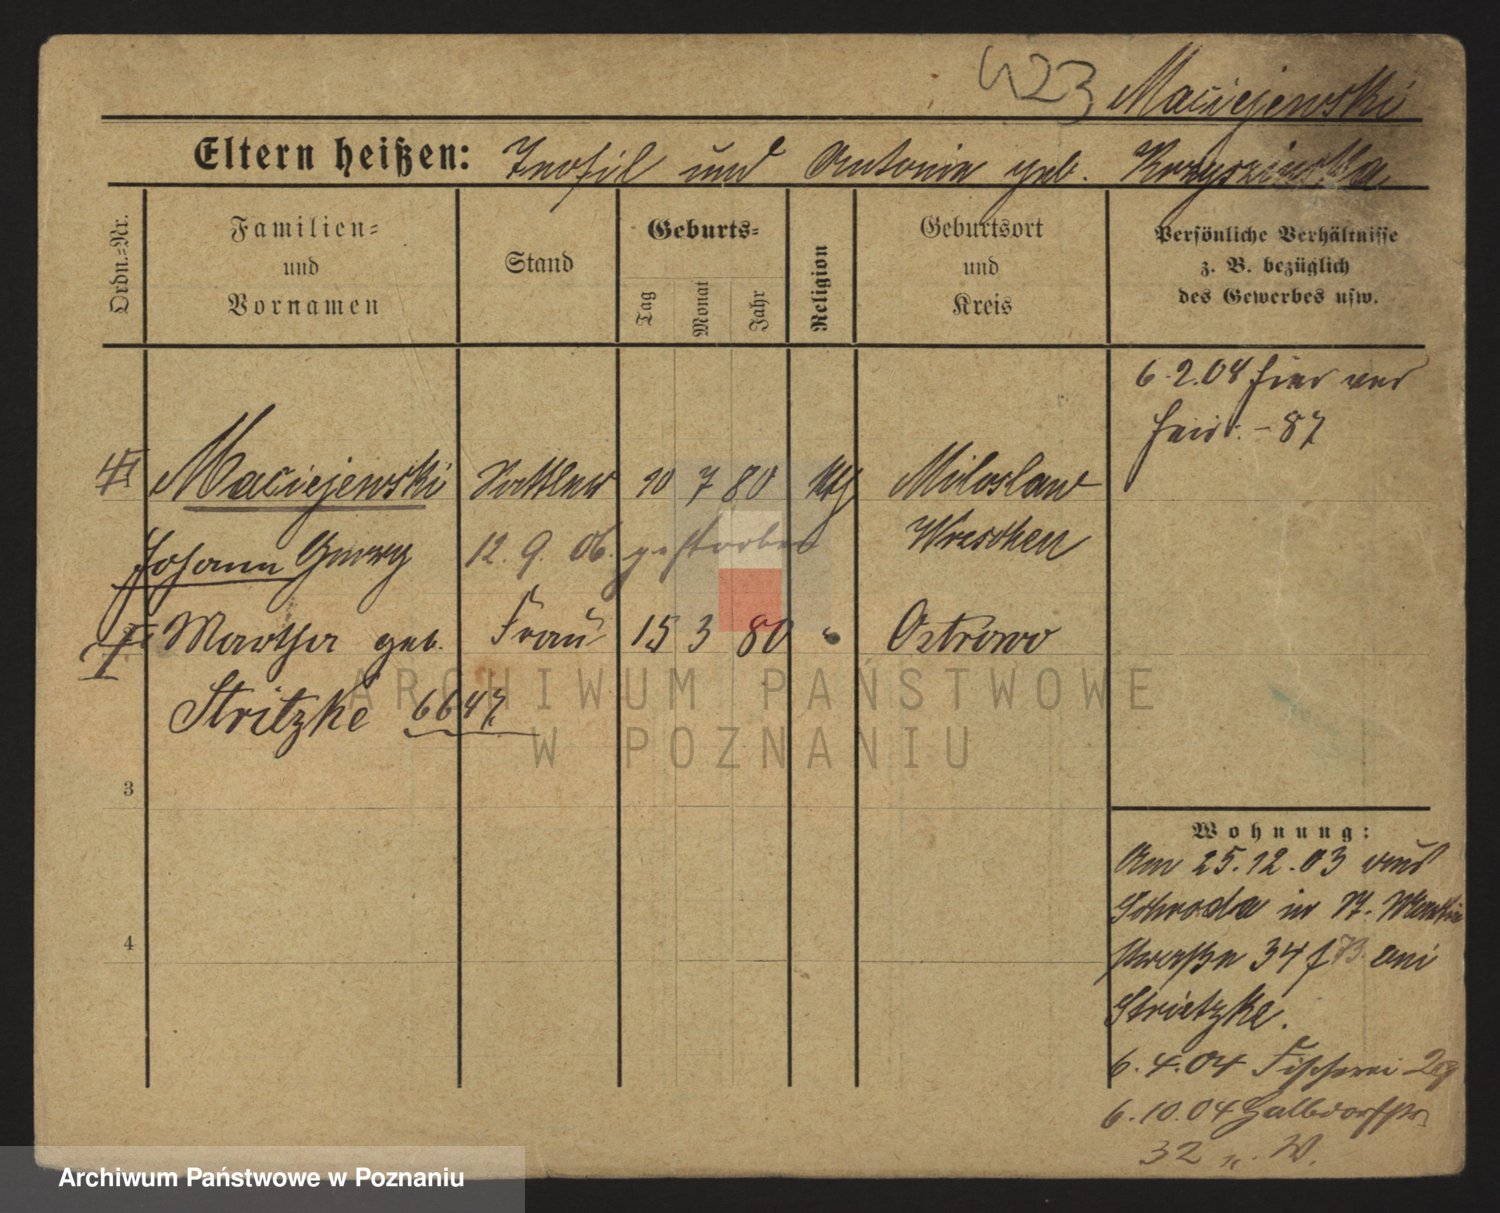 423 Maciejewski
Eltern heißen: Teofil und Antonie geb.
Ordn.-Nr.
Familien-
und
Vornamen
Stand
Geburts-
Tag
Monat
Jahr
Religion
Geburtsort
und
Kreis
Persönliche Verhältnisse
z. B. bezüglich
des Gewerbes usw.
6.2.04 hier ver
heir. - 87
Maciejewski Sattler 20 7 80 kth Miloslaw
Johann Georg 12. 9. 06. gestorben Wreschen
Martha geb. Frau 15 3 80 " Ostrowo
Stritzke 6647
3
4
Wohnung:
Am 25.12.03 aus
Schroda in
straße 34 bei
Strietzke.
6.4.04 Fischerei
6.10.04 Halbdorfstr.
32 n. W.
ARCHIWUM PAŃSTWOWE
W POZNANIU
Archiwum Państwowe w Poznaniu